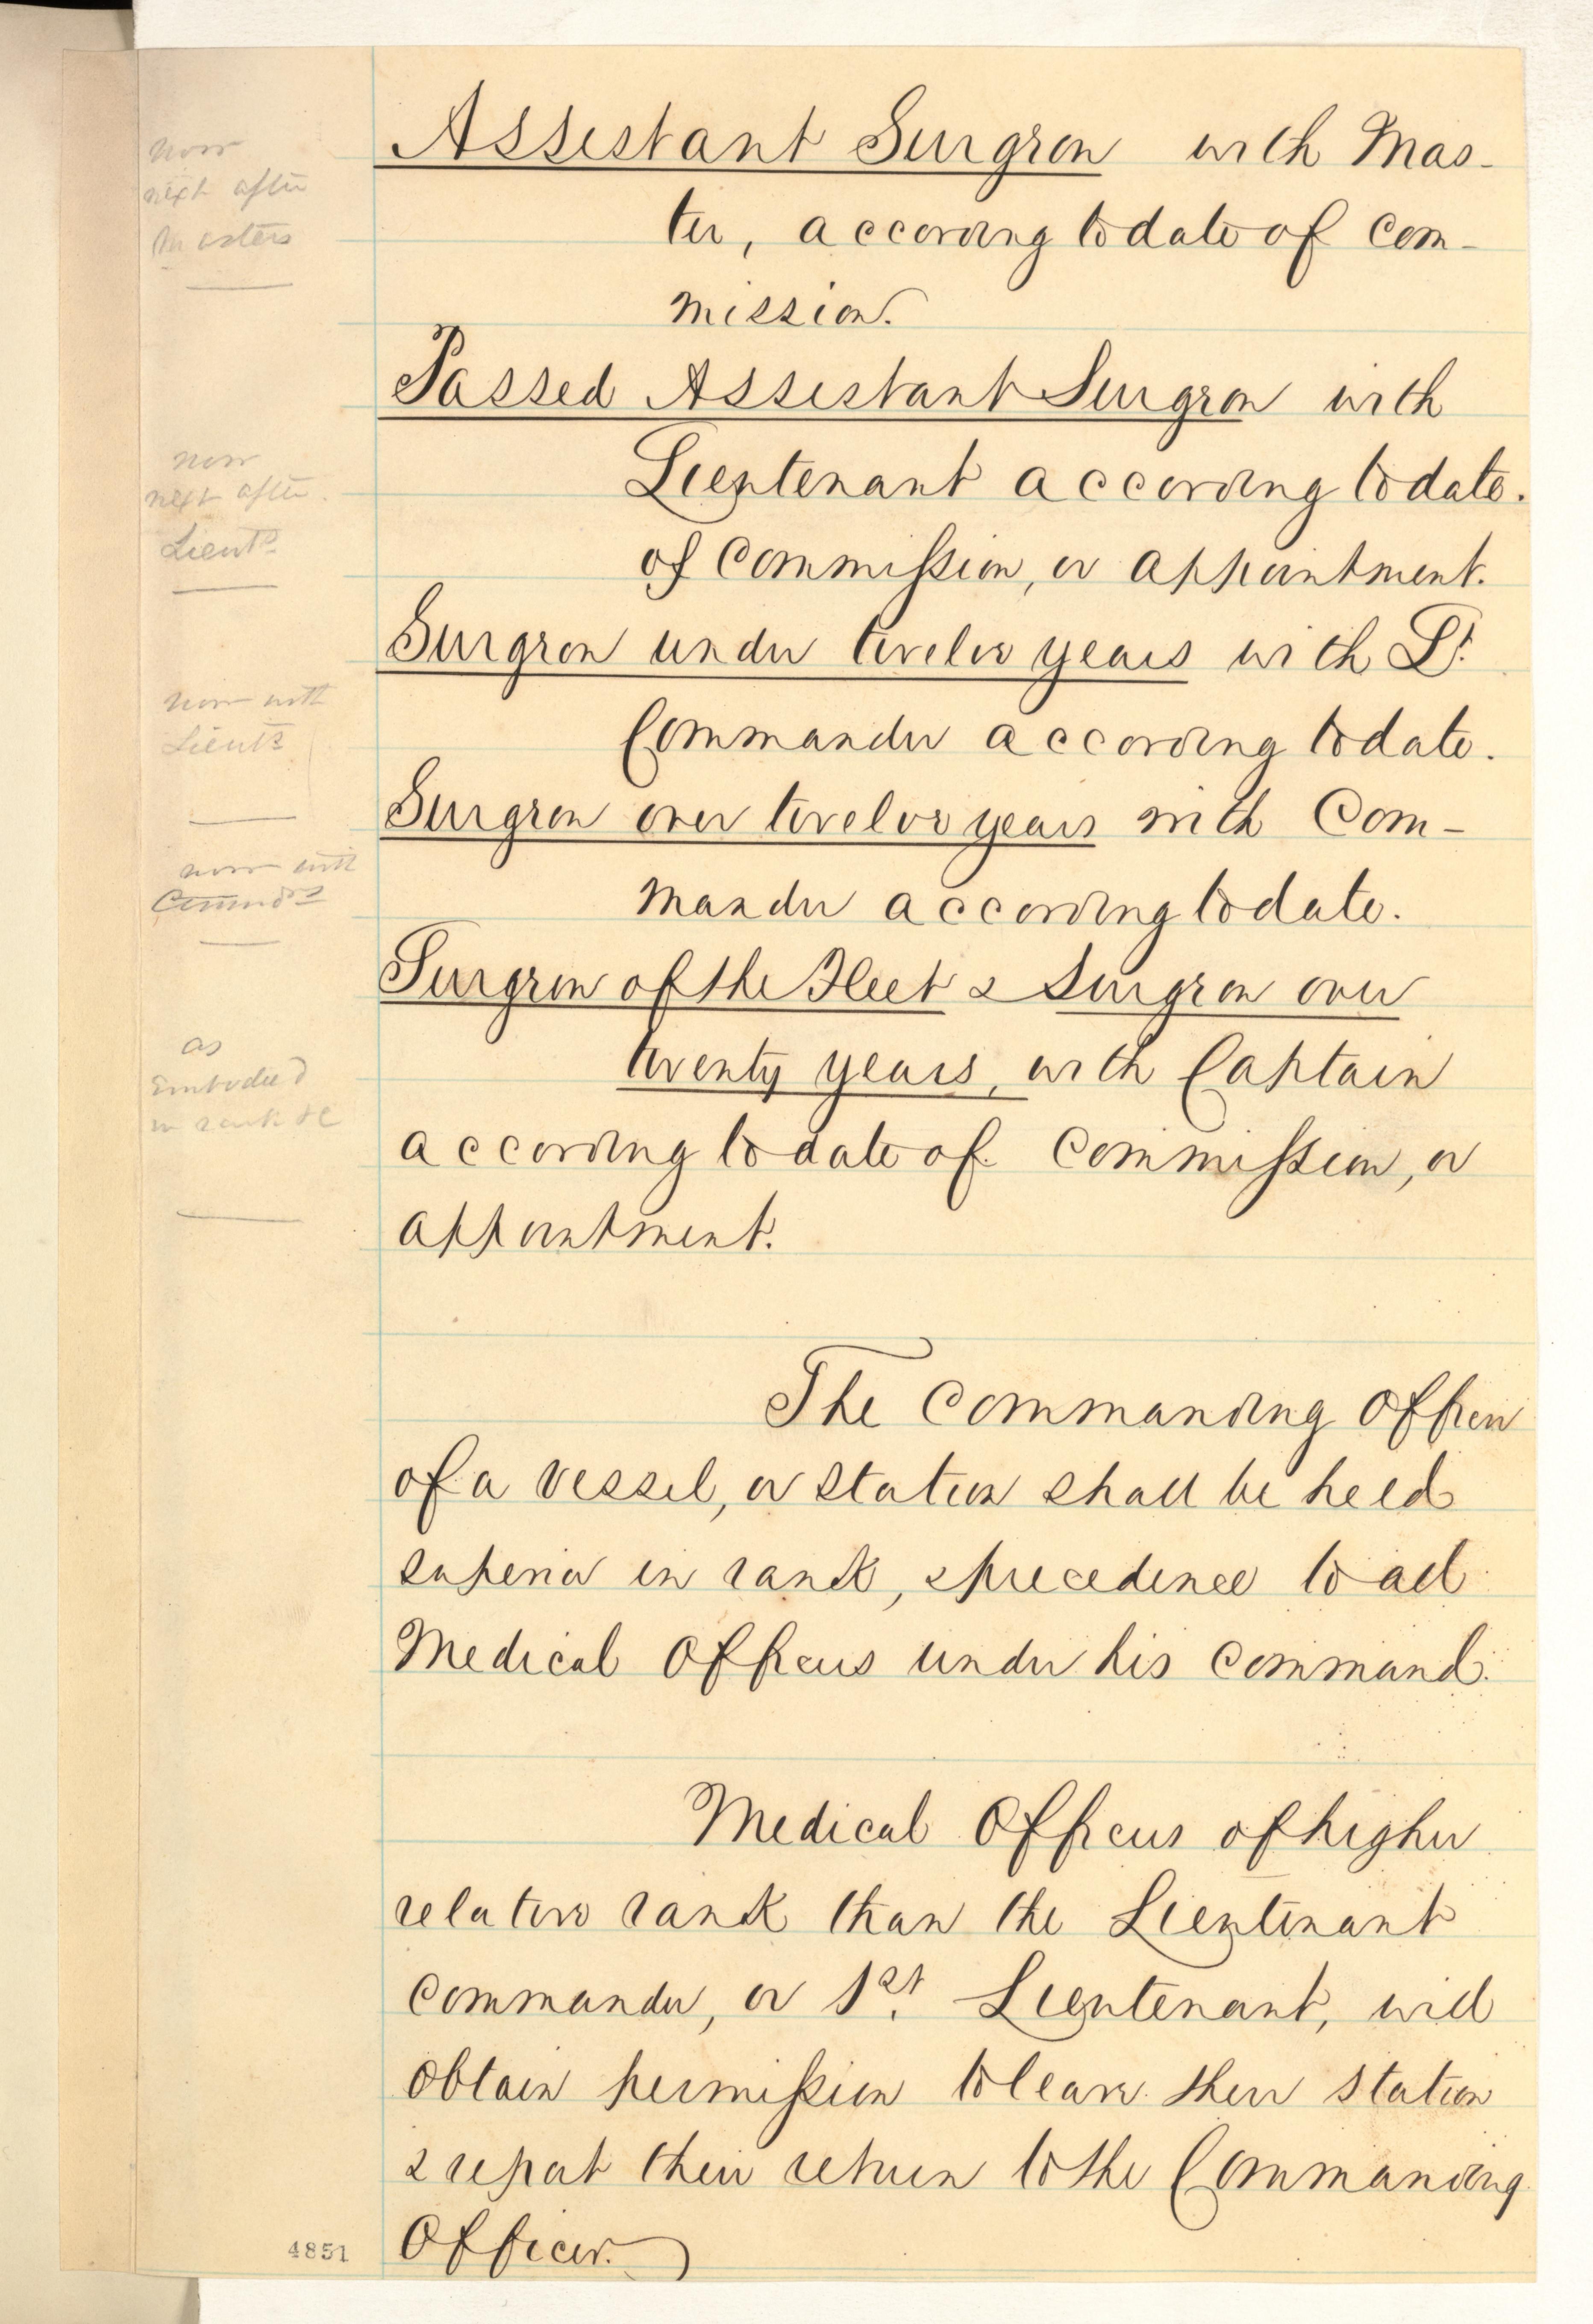 now
next after
Masters
Assistant Surgeon with Mas-
ter, according to date of Com-
mission.
Passed Assistant Surgeon with
now
next after
Lieuts
Lieutenant according to date.
of Commission, or appointment.
Surgeon under twelve years with Lt.
now with
Lieuts
Commander according to date.
Surgeon over twelve years with Com-
now with
Commdrs
mander according to date.
Surgeon of the Fleet & Surgeon over
as
Embodied
in rank &c
twenty years, with Captain
according to date of Commission, or
appointment.
The Commanding Officer
of a vessel, or station shall be held
superior in rank, & precedence to all
Medical Officers under his command.
Medical Officers of higher
relative rank than the Lieutenant
Commander, or 1st. Lieutenant, will
obtain permission to leave their station
& report their return to the Commanding
Officer.
4851